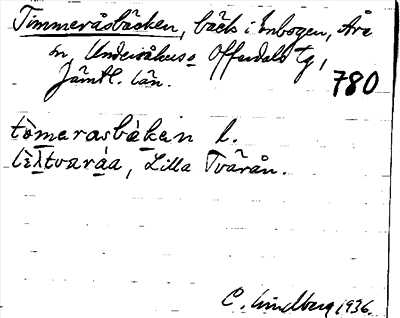 Timmeråsbäcken, bäck i Enbogen, Åre
sn, Undersåkers o Offerdals tg,
Jämtl. län.
780
tòmerasbæken l.
lɩ̀ƛtvaráa, Lilla Tvärån.
C. Lindberg 1936.